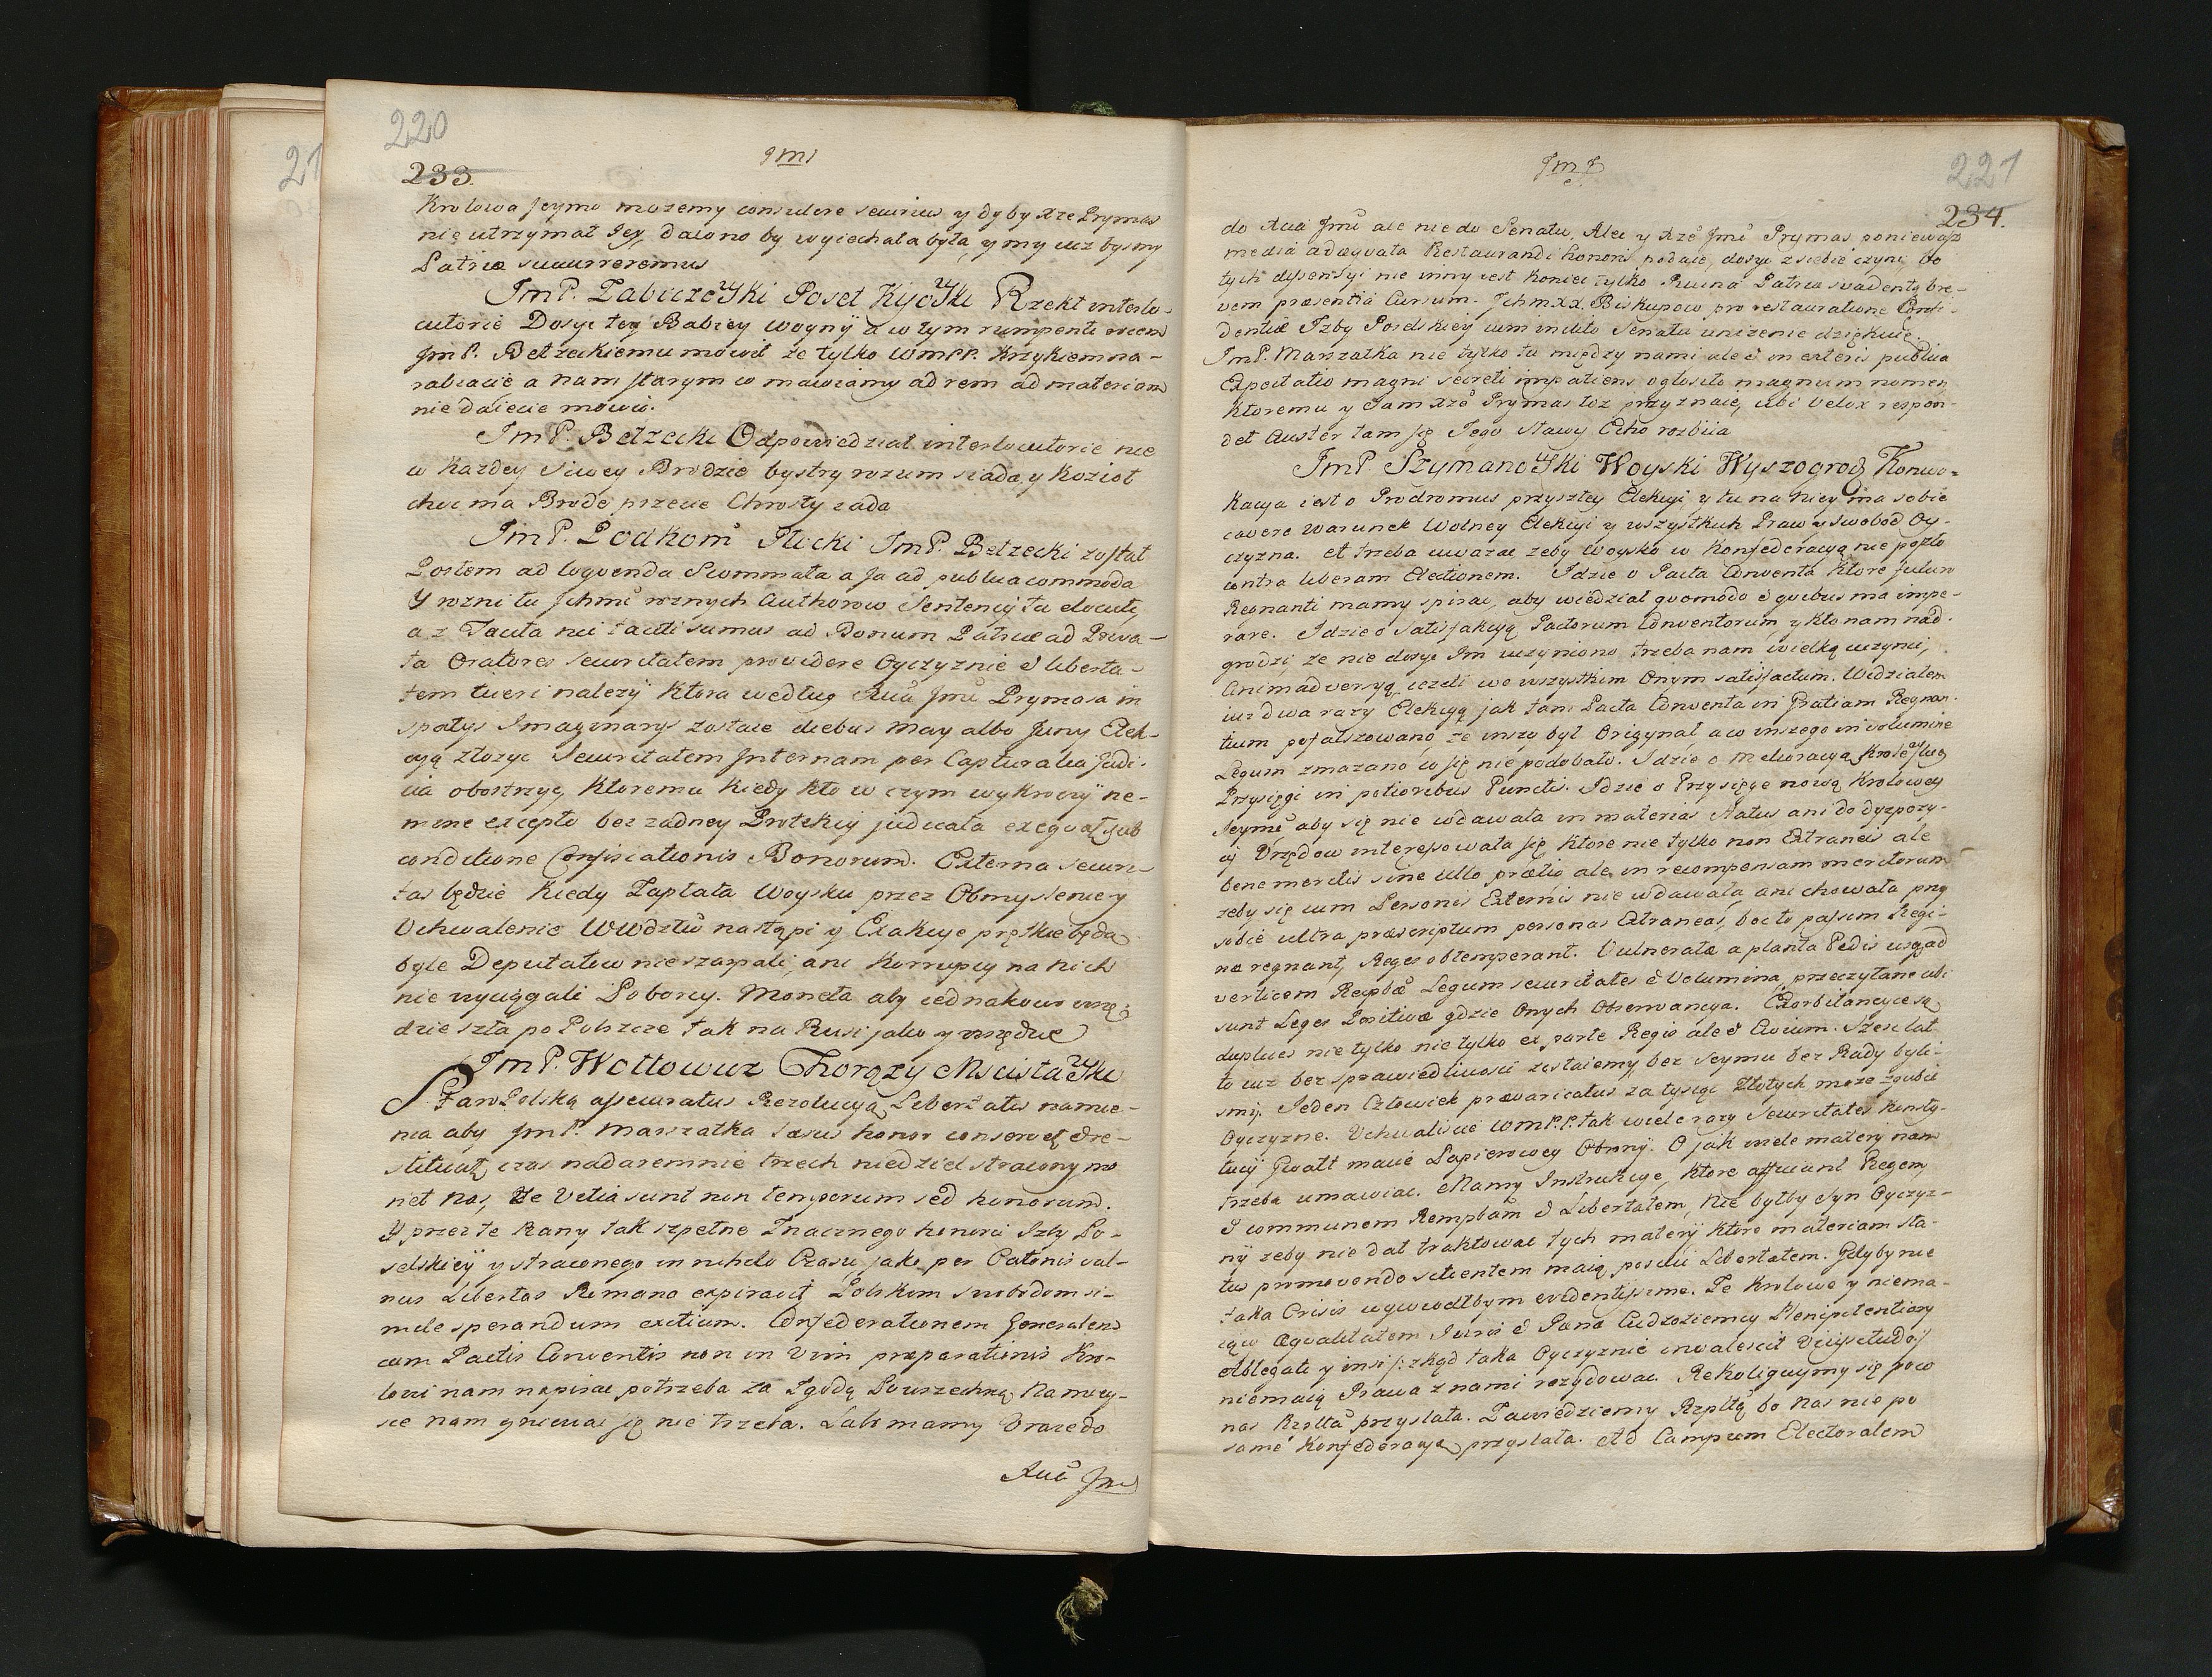 220
233.
Krolowa Jeymo mozemy consulere securius y dyby Xze Prymas
nię utrzymał Jey, dawno by wyiechała była, y my iuz bysmy
Patriæ succurreremus
JmP. Zabiczewski Poseł Kijowski Rzekł interlo-
cutorie Dosyc tey Babiey woyny a w tym rumpenti vocem
JmP. Bełzeckiemu mowił ze tylko WmPP. krzykiem na-
rabiacie a nam starym co mawiamy ad rem ad materiam
nie daiecie mowic.
JmP. Bełzecki Odpowiedział interlocutorie nie
w kazdey Siwey Brodzie bystry rozum siada, y Kozioł
choc ma Brodę przecie Chrosty iada
JmP. Podkom Płocki JmP. Bełzecki został
Posłem ad loquenda Scommata a ja ad publica commoda
Y rozni tu Ichmc roznych Authorow Sentencÿ tu
a z Tacita nic taciti sumus ad Bonum Patriæ ad Priva-
ta Oratores securitatem providere Oyczyznie & liberta-
tem tueri nalezÿ ktora według Xcia Jmci Prymasa in
spatÿs Imaginarÿs zostaie diebus May albo Juny Elek-
cyą złozyc Securitatem Internam per Capturalia Judi-
cia obostrzyc, ktoremu kiedy kto w czym wykroczÿ ne-
mine excepto bez zadney Protekcÿ judicata exequat sub
conditione Confiscationis Bonorum. Externa securi-
tas będzie kiedy Zapłata Woysku przez Obmyslenie y
Uchwalenie Wwdztw nastąpi y Exakcye prętkie będą
byle Deputatow nie szarpali, ani Korrupcy na nich
nie wyciągali Poborcy. Moneta aby iednakowo wszę-
dzie szła po Polszcze tak na Rusi jako y wszędzie
JmP. Wołłowicz Chorązy Mscisławski
Stan Polską assecuratus Rezolucyą, Libertatis namie-
nia aby JmP. Marszałka læsus honor conservet & re-
stituat, czas nadaremnie trzech niedziel stracony mo
net nas, Ze Vetia sunt non temporum sed honorum.
Y przez te Rany tak szpetne Znacznego honoru Izby Po-
selskieÿ y straconego in nihilo Czasu, jako per Catonis vul-
nus Libertas Romana expiravit Polskom swobodom si-
mile sperandum exitium. Confederationem Generalem
cum Pactis Conventis non in Vim præparationis Kro-
lowi nam napisac potrzeba za Zgodą Powszechną. Na
sie nam gniewac się nie trzeba. Lubo mamy Urazę do
Xcia Jmci
221
234.
do Xcia Jmci ale nie do Senatu, Ale y Xze Jmc Prymas poniewasz
media adæqvata Restaurandi honoris podaie, dosyc z siebie czyni. Do
tych dyssensyi nie inny iest koniec tylko Ruina Patriæ svadentq bre-
vem præsentia Cursum. JchmXX. Biskupow pro restauratione Confi-
dentiæ Izby Poselskiey cum inclito Senatu unizenie dziękuię.
JmP. Marszałka nie tylko tu między nami ale & in exteris publica
Expectatio magni secreti impatiens ogłosiła magnum nomen
ktoremu y sam Xze Prymas toz przyznaie, ubi Velox respon-
det Auster tam się Jego sławy Echo rozbiia
JmP. Szymanowski Woyski Wyszogrod Konwo-
kacya iest o Prodromus przyszłey Elekcyi y tu na niey ma sobie
cavere warunek Wolney Elekcyi y wszystkich Praw y swobod Oy-
czyzna. et trzeba uwazac zeby woysko w Konfederacyą nie poszło
contra liberam Electionem. Idzie o Pacta Conventa ktore futuro
Regnanti mamy spisac, aby wiedział quomodo & quibus ma impe-
rare. Idzie o satisfakcyą Pactorum Conventorum, y kto nam nad-
grodzi, ze nie dosyc Im uczyniono, trzeba nam wielką uczynic,
Animadversyą, iezeli we wszystkim Onym satisfactum. Widziałem
iuz dwa razy Elekcyą jak tam Pacta Conventa in Gratiam Regnan-
tium pofałszowano, ze inszy był Origynał, a co inszego in volumine
Legum zmazano co się nie podobało. Idzie o Melioracyą Krolewskiey
Przysięgi in potioribus Punctis. Idzie o Przysięge nową Krolowey
Jeymc, aby się nie wdawała in materias status ani do dyspozy-
cÿ Urzędow interessowała się, ktore nie tylko non Extraneis ale
bene meritis sine ullo prætio ale in recompensam meritorum
zeby się cum Personis Externis nie wdawała, ani chowała przy
sobie ultra præscriptum personas Extraneas, boc to passim Regi-
næ regnant, Reges obtemperant. Vulneratæ a planta Pedis usq ad
verticem Reipbæ Legum securitates & Volumina, przeczytane ubi
sunt Leges Positivæ gdzie Onych Observancya. Exorbitancye są
duplices nie tylko nie tylko ex parte Regis ale & Civium. Szesc lat
to iuz bez sprawiedliwosci zostaiemy, bez Seymu bez Rady byli-
smÿ. Jeden Człowiek prævaricatus za tysiąc Złotych moze zgubic
Oyczyznę. Uchwaliscie WmP.P. tak wiele razy Securitates Konsty-
tucÿ Gwałt macie Papierowey Obrony. O jak wiele materÿ nam
trzeba umawiac. Mamy Instrukcye, ktore afficiunt Regem
& communem Rempbam & Libertatem, Nie byłby Syn Oyczyz-
nÿ zeby nie dał traktowac tych materÿ ktore materiam sta-
tus promovendo silientem maią Libertatem. Gdyby nie
taka Crisis wywiodłbym evidentissime. Ze Krolowe y niema-
iąc Æqvalitatem Juris & Pana Cudzoziemcy Plenipotentiary
Ablegaci y insi /: zkąd taka Oyczyznie invalescit Vicissitudo:/
niemaią Prawa z nami rezydowac. Rekoligwymy się poco
nas Rzpltа przysłała. Zawiedziemy Rzpltą bo nas nie po
samo Konfederacyą przysłała. Ad Campum Electoralem